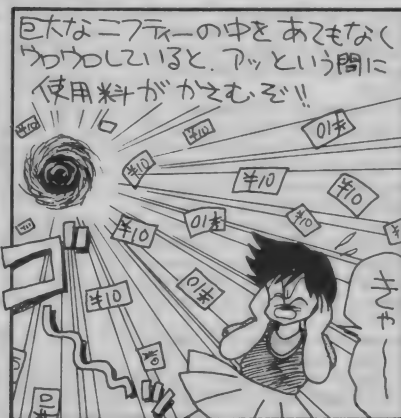 巨大なニフティーの中をあてもなく
ウロウロしていると、アッという間に
使用料がかさむぞ!!
¥10
¥10
¥10
¥10
¥10
¥10
¥10
¥10
¥10
¥10
¥10
¥10
¥10
きゃー
ゴ